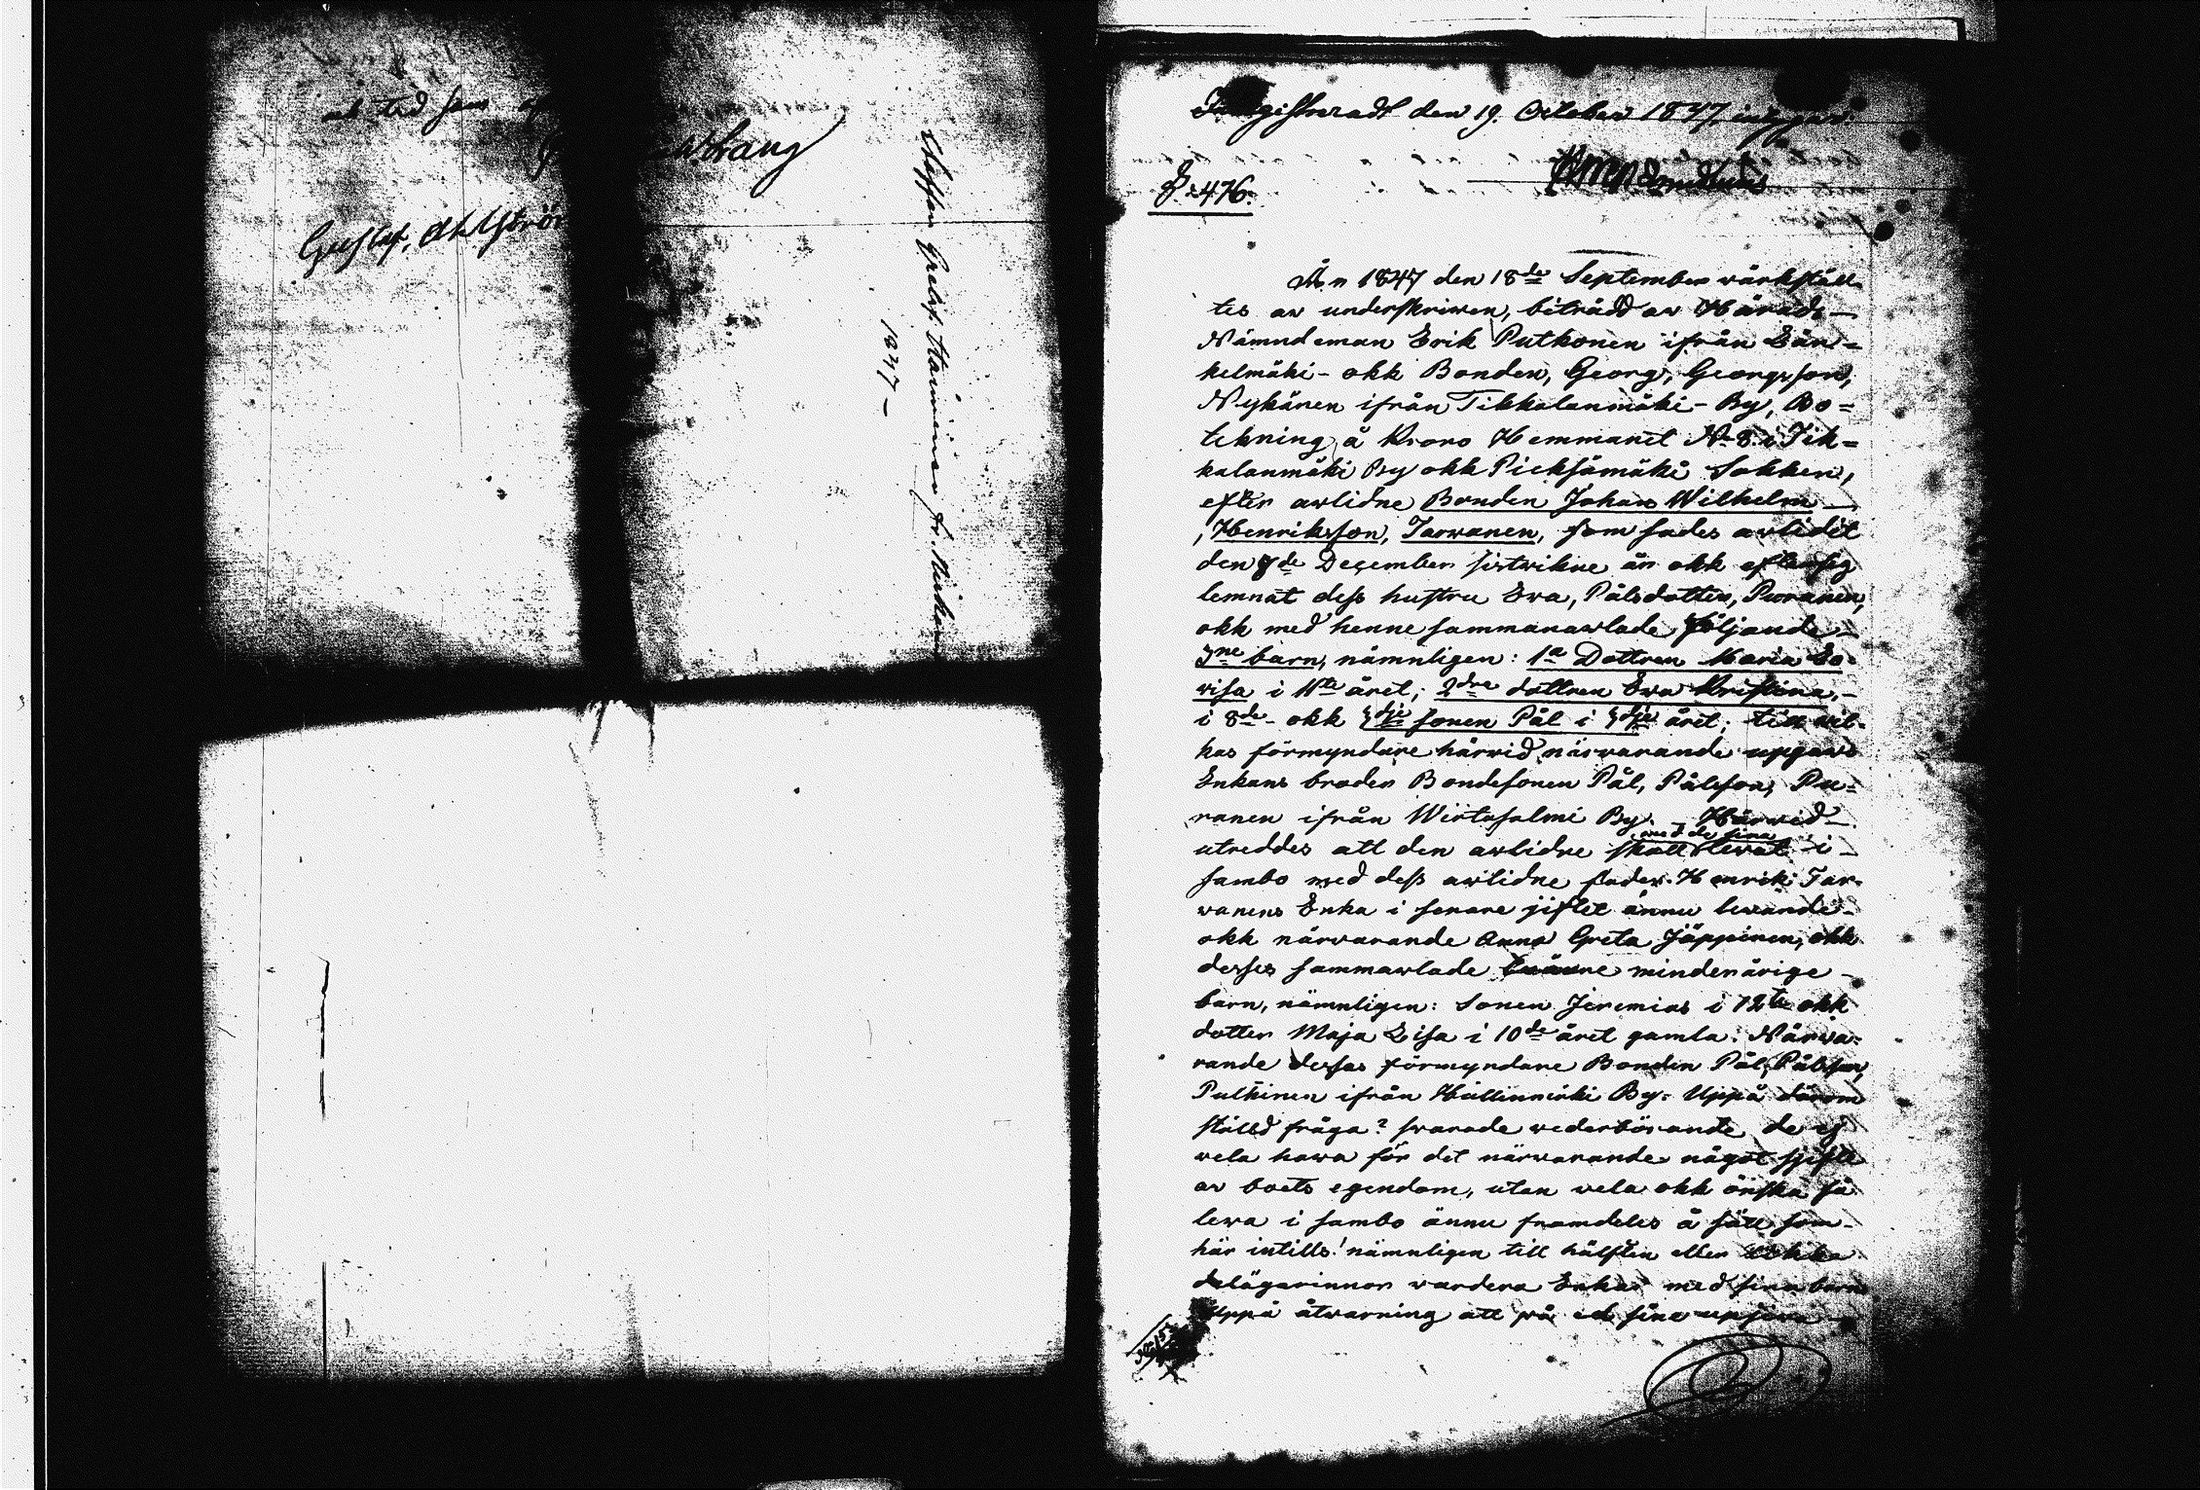 ut sed som
Gustaf, Ahlströ
Staffan Gratis Hämäläinen fr. Mickel
1847 –
Ingistreradt den 19. October 1847, intygar:
§ 476.
År 1847 den 18de September värkställ-
tes av underskriwen, biträdd av Härads-
Nämndeman Erik Putkonen ifrån Län-
kelmäki- okk Bonden, Georg, Georgsson,
Nykänen ifrån Tikkalanmäki- By, Bo=
tekning å Krono Hemmanet N. 8. i Tik=
kalanmäki By okk Pieksämäki Sokken,
efter avlidne Bonden Johan Wilhelm
, Henriksson, Tarvanen, som sades avledit
den 8de December sistvikne år okk efter sig
lemnat dess hustru Eva, Pålsdotter, Puranen,
okk med henne sammanavlade följande
3ne barn, nämnligen: 1a Dottren Maria Lo-
visa i 11te året; 2dre dottren Eva Kristina,
i 8de- okk 3dje sonen Pål i 3dje året; till vil-
kas förmyndare härvid närvarande uppgavs
Enkans broder Bondesonen Pål, Pålsson, Pu=
ranen ifrån Wirtasalmi By. Härvid
utreddes att den avlidne skall med de sina levat i
sambo med dess avlidne fader Henrik Tar-
vanens Enka i senare jiftet ännu levande
okk närvarande Anna Greta Jäppinen, okk
desses sammavlade minderårige
barn, nämnligen: Sonen Jeremias i 12te okk
dotter Maja Lisa i 10de året gamla. Närva-
rande dessas förmyndare Bonden Pål, Pålsson,
Pulkinen ifrån Hällinmäki By. Uppå därom
ställd fråga? svarade vederbörande, de ej
vela hava för det närvarande något sjifte
av boets egendom, utan vela okk önska få
leva i sambo ännu framdeles å sätt som
här intills! nämnligen till hälften eller
delägarinnor vardera Enka med sina barn
Uppå åtvarning att på ed sine uppjiva